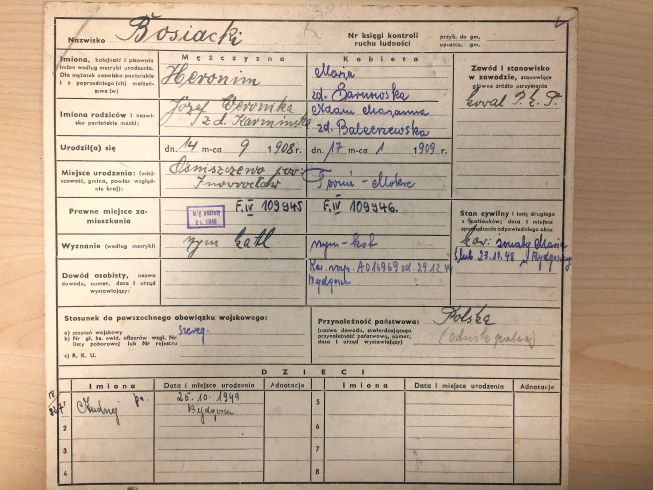 Nazwisko Bosiacki
Nr księgi kontroli ruchu ludności
przyb. do gm.
opuszcz. gm.
Imiona, kolejność i pisownia imion według metryki urodzenia. Dla mężatek nazwisko panieńskie i z poprzedniej(ch) małżeństwa (w)
Mężczyzna
Heronim
Kobieta
Maria
zd. Barnowska
Zawód i stanowisko w zawodzie, stanowiące główne źródło utrzymania
Koval P.K.P.
Imiona rodziców i nazwisko panieńskie matki:
Józef Weronika
z d. Karmińska
Adam Marjanna
zd.
Urodził(a) się
dn. 14 m-ca 9 1908 r.
dn. 17 m-ca 1 1909 r.
Miejsce urodzenia: (miejscowość, gmina, powiat względnie kraj):
pow.
Inowrocław
Toruń - Mokre
Prawne miejsce zamieszkania
F.IV 109945
F.IV 109946.
Stan cywilny i imię drugiego z małżonków; data i miejsce sporządzenia odpowiedniego aktu
Maria
ślub 23.12.48 Bydgoszcz
Wyznanie (według metryki)
rzym katl
rzym-kat
Dowód osobisty, nazwa dowodu, numer, data i urząd wystawiający:
A016969 zd. 29.12.
Bydgoszcz
Stosunek do powszechnego obowiązku wojskowego:
a) stopień wojskowy szereg.
b) Nr gł. ks. ewid. oficerów wzgl. Nr listy poborowej lub Nr rejestru
c) R. K. U.
Przynależność państwowa: Polska
(nazwa dowodu, stwierdzającego przynależność państwową, numer, data i urząd wystawiający)
DZIECI
Imiona
Data i miejsce urodzenia
Adnotacje
Imiona
Data i miejsce urodzenia
Adnotacje
1 Andrzej 25.10.1949
Bydgoszcz
5
2
6
3
7
4
8